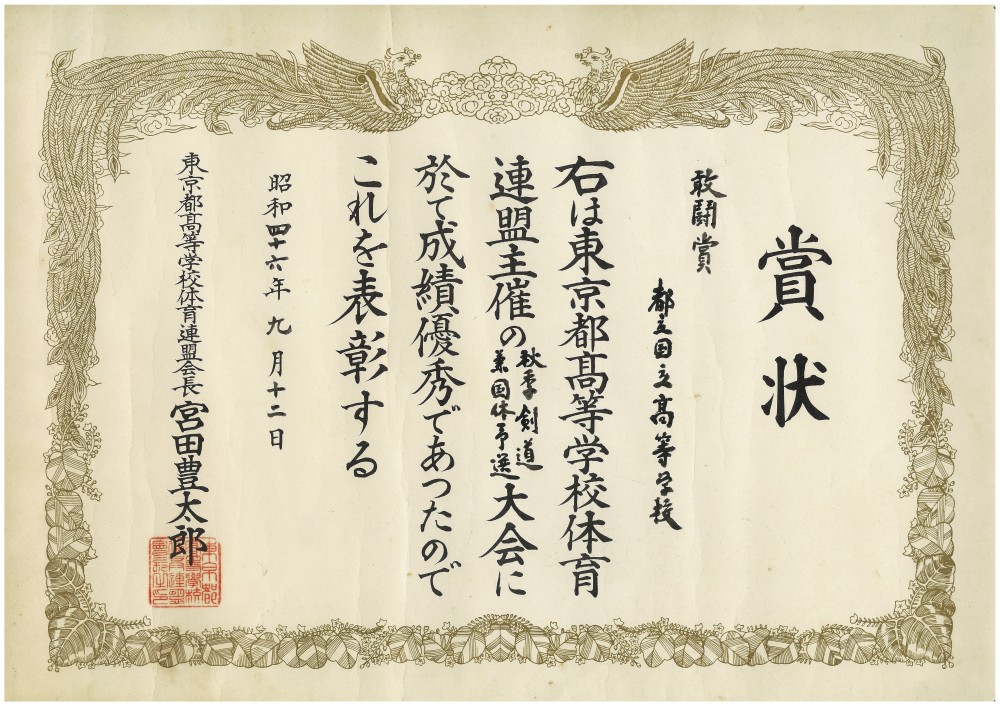 賞状
敢闘賞
都立国立高等学校
右は東京都髙等学校体育
連盟主催の秋季剣道
兼国体予選大会に
於て成績優秀であつたので
これを表彰する
昭和四十六年九月十二日
東京都髙等学校体育連盟会長宮田豊太郎